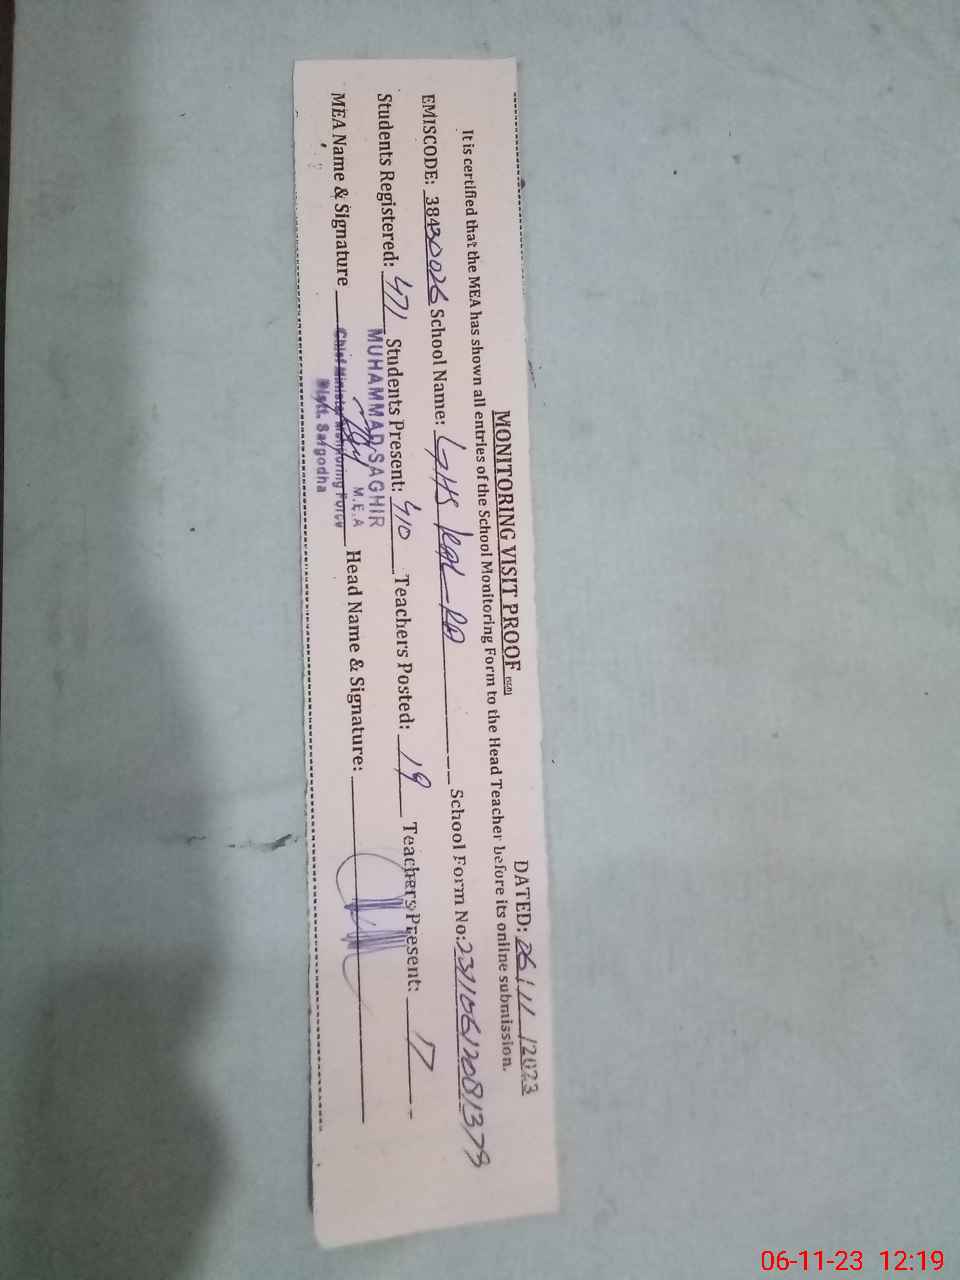 MONITORING VISIT PROOF
DATED: 26/11/2023
It is certified that the MEA has shown all entries of the School Monitoring Form to the Head Teacher before its online submission.
EMISCODE: 38430026 School Name: GHS School Form No:
Students Registered: 471 Students Present: 410 Teachers Posted: 19 Teachers Present: 17
MUHAMMAD SAGHIR
M.E.A
MEA Name & Signature Head Name & Signature:
Chief Minister Monitoring Force
Distt. Sargodha
06-11-23 12:19